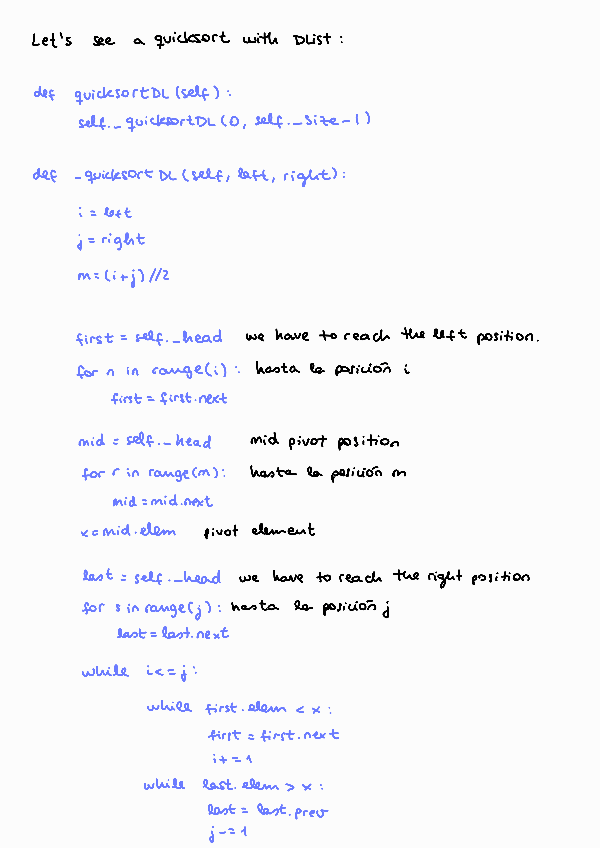 Let's see a quicksort with DList :
def quicksortDL (self) :
self._quicksortDL (0, self._size-1)
def _quicksort DL (self, left, right):
i = left
j = right
m=(i+j)//2
first = self._head we have to reach the left position.
for n in range(i) : hasta la posición i
first = first.next
mid = self._head mid pivot position
for r in range(m): hasta la posición m
mid =mid.next
x=mid.elem pivot element
last = self._head we have to reach the right position
for s in range(j) : hasta la posición j
last=last.next
while i<=j:
while first.elem < x :
first = first.next
i+=1
while last.elem > x :
last = last.prev
j-=1